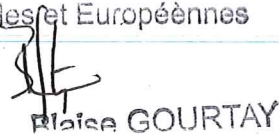 les et Européènnes
Blaise GOURTAY